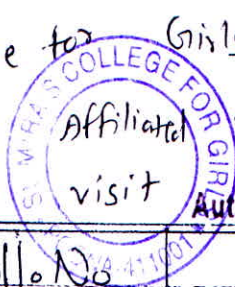 e for Girls
ST. MIRA'S COLLEGE FOR GIRLS
Affiliated
visit
Aut
llo No
411001